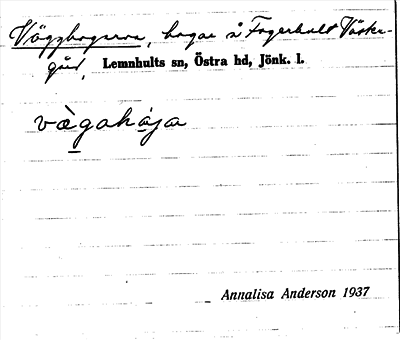 Väggahagarna, hagar å Fagerhult Väster-
gård, Lemnhults sn, Östra hd, Jönk. l.
vàgahája
Annalisa Anderson 1937